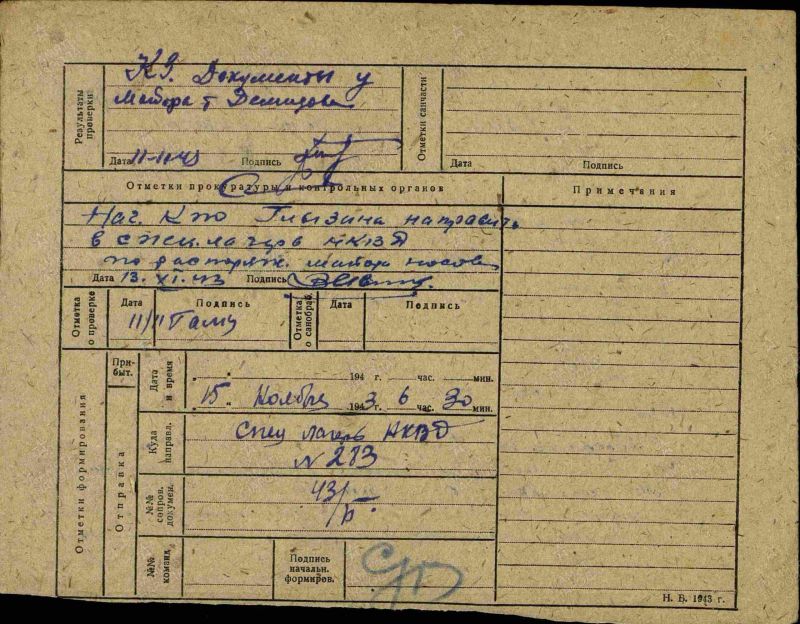 Результаты проверки
КЭ. Документы у
майора т Демидова
Дата 11-11-43 Подпись
Отметки санчасти
Дата Подпись
Отметки прокуратуры и контрольных органов
Примечания
Нач. Кпо Глызина направить
в спец.лагерь НКВД
по распоряж. майора Носова
Дата 13.XI.43 Подпись
Отметка о проверке
Дата Подпись
11/11
Отметка о санобраб.
Дата Подпись
Отметки формирования
Прибыт.
Отправка
Дата и время
194 г. час. мин.
15 Ноября 1943 г. 6 час. 30 мин.
Куда направл.
Спец лагерь НКВД
N 283
№№ сопров. докумен.
43/
№№ команд.
Подпись начальн. формиров.
Н. В. 1943 г.